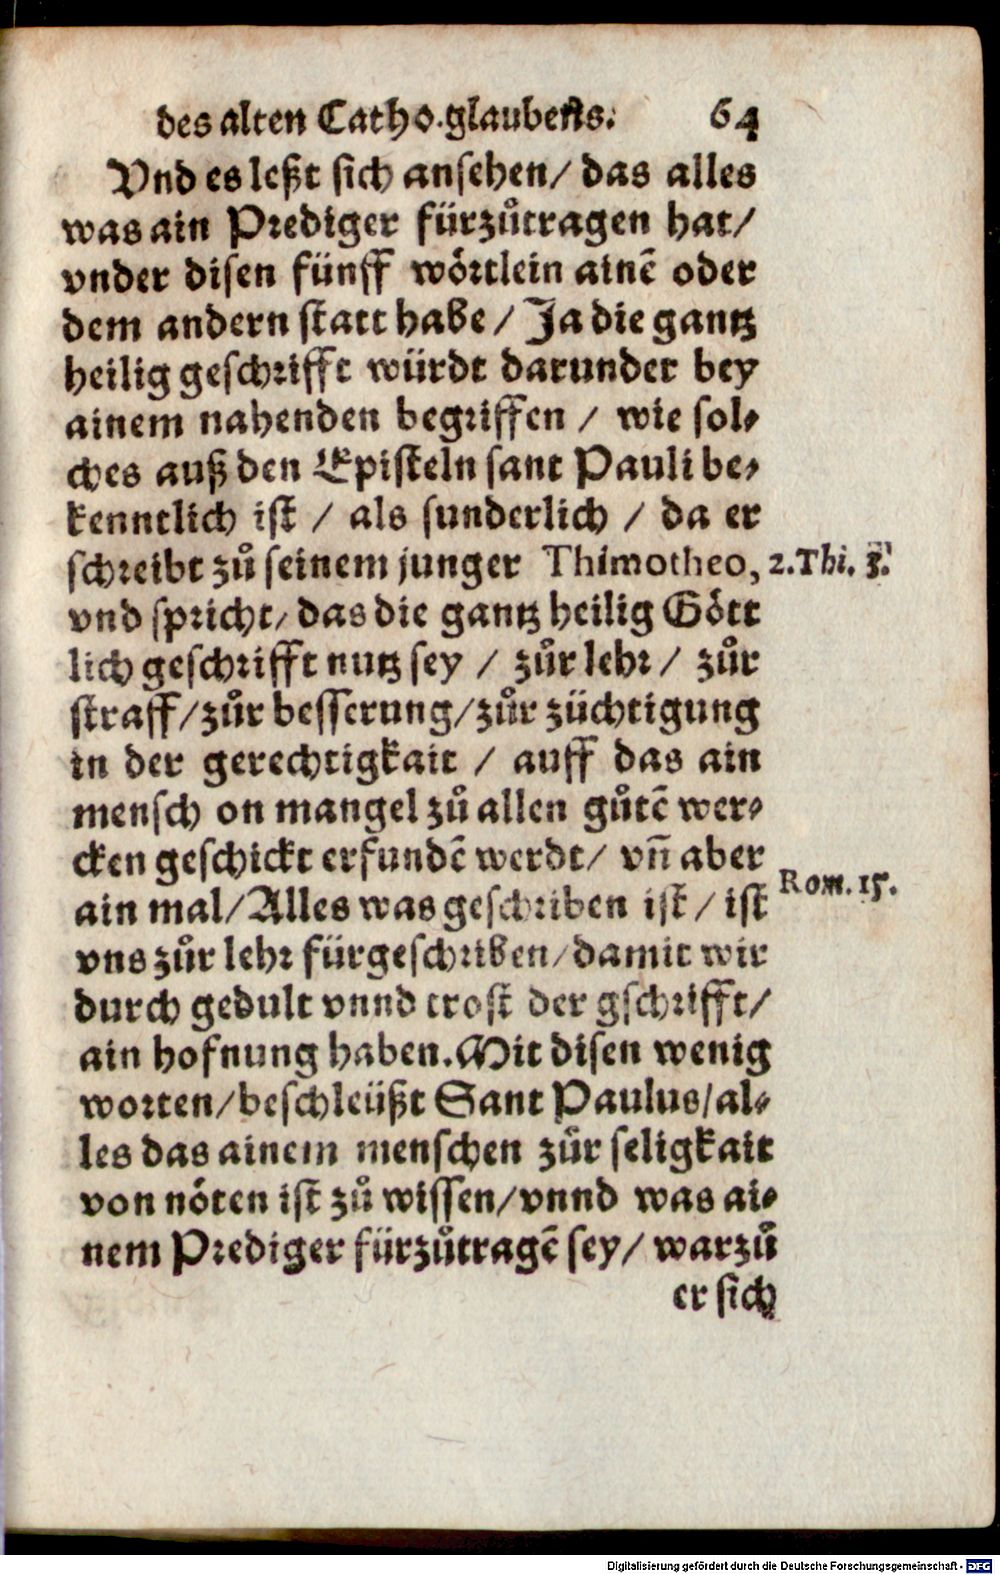 des alten Catho.glaubens. 64
Vnd es leßt sich ansehen/ das alles
was ain Prediger fürzůtragen hat/
vnder disen fünff wörtlein ainē oder
dem andern statt habe / Ja die gantz
heilig geschrifft würdt darunder bey
ainem nahenden begriffen / wie sol⸗
ches auß den Episteln sant Pauli be⸗
kenntlich ist / als sunderlich / da er
schreibt zů seinem junger Thimotheo,
2.Thi. 3.
vnd spricht/ das die gantz heilig Gött
lich geschrifft nutz sey / zůr lehr / zůr
straff/zůr besserung/zůr züchtigung
in der gerechtigkait / auff das ain
mensch on mangel zů allen gůtē wer⸗
cken geschickt erfundē werdt/ vñ aber
ain mal/Alles was geschriben ist / ist
Rom. 15.
vns zůr lehr fürgeschriben/damit wir
durch gedult vnnd trost der gschrifft/
ain hofnung haben.Mit disen wenig
worten/beschleüßt Sant Paulus/al⸗
les das ainem menschen zůr seligkait
von nöten ist zů wissen/vnnd was ai⸗
nem Prediger fürzůtragē sey/ warzů
er sich
Digitalisierung gefördert durch die Deutsche Forschungsgemeinschaft - DFG